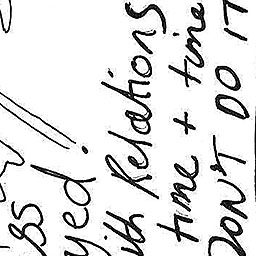 ss
yed.
ith Relations
time + time
DON'T DO IT